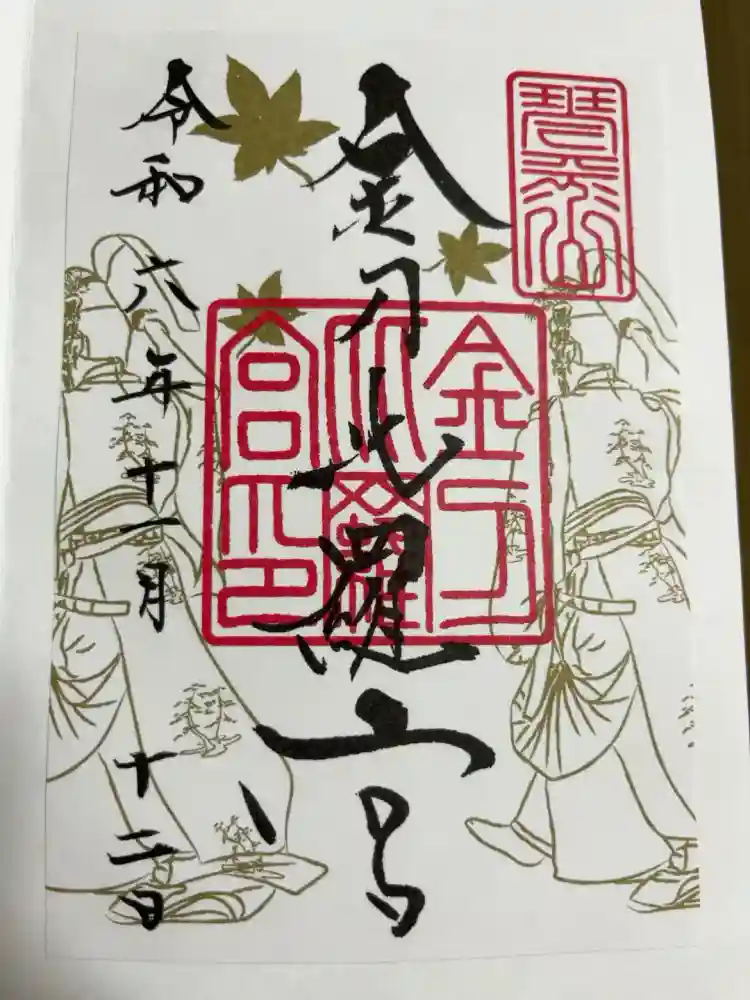 琴平山
金刀比羅宮
金刀
比羅
宮印
令和六年十一月十二日